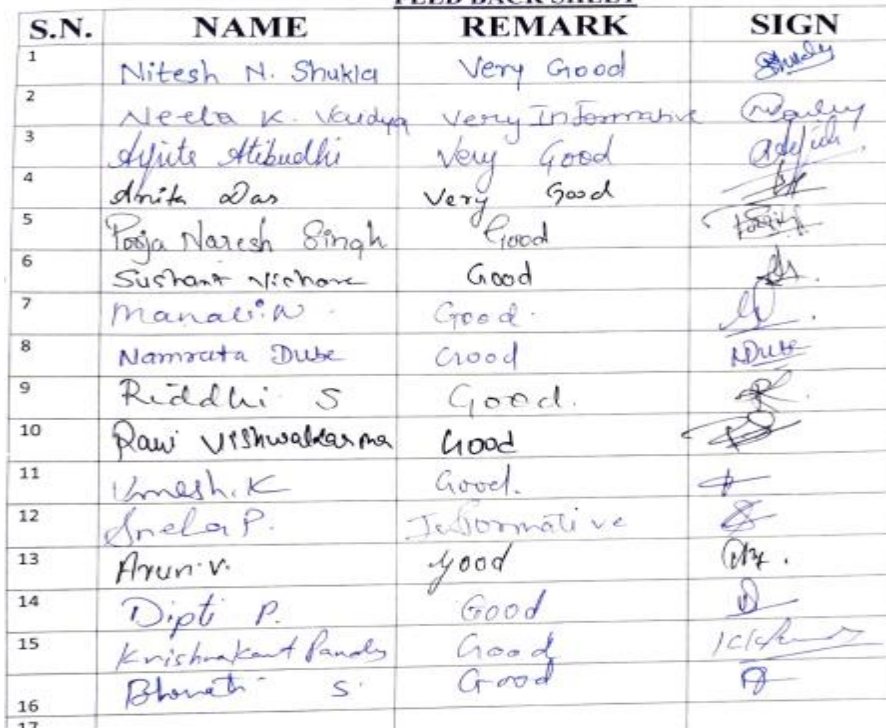 FEED BACK SHEET
S.N. NAME REMARK SIGN
1 Nitesh N. Shukla Very Good
2 Neela K. Vaidya Very Informative
3 Atibudhi Very Good
4 Anita Das Very Good
5 Pooja Naresh Singh Good
6 Sushant Good
7 Manali.N. Good.
8 Namrata Dube Good NDube
9 Riddhi S Good.
10 Ravi Vishwakarma Good
11 Umesh.K Good.
12 Sneha P. Informative
13 Arun.V. Good
14 Dipti P. Good
15 Krishnakant Pandey Good
16 S. Good
17